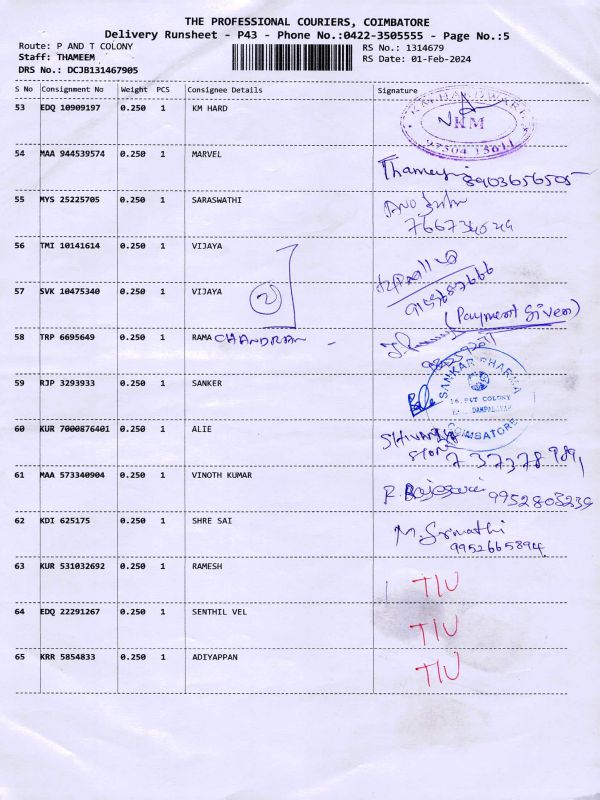 THE PROFESSIONAL COURIERS, COIMBATORE
Delivery Runsheet - P43 - Phone No.:0422-3505555 - Page No.:5
Route: P AND T COLONY RS No.: 1314679
Staff: THAMEEM RS Date: 01-Feb-2024
DRS No.: DCJB131467905
S No Consignment No Weight PCS Consignee Details Signature
53 EDQ 10909197 0.250 1 KM HARD
KM
97504 15011
54 MAA 944539574 0.250 1 MARVEL
8903656505
55 MYS 25225705 0.250 1 SARASWATHI
56 TMI 10141614 0.250 1 VIJAYA
57 SVK 10475340 0.250 1 VIJAYA
2
(Payment Given)
58 TRP 6695649 0.250 1 RAMA CHANDRAN -
59 RJP 3293933 0.250 1 SANKER
SANKAR PHARMA
COIMBATORE
60 KUR 7000876401 0.250 1 ALIE
61 MAA 573340904 0.250 1 VINOTH KUMAR
R. Rajeswari 9952803239
62 KDI 625175 0.250 1 SHRE SAI
M. Srimathi
9952665894
63 KUR 531032692 0.250 1 RAMESH T/U
64 EDQ 22291267 0.250 1 SENTHIL VEL T/U
65 KRR 5854833 0.250 1 ADIYAPPAN T/U